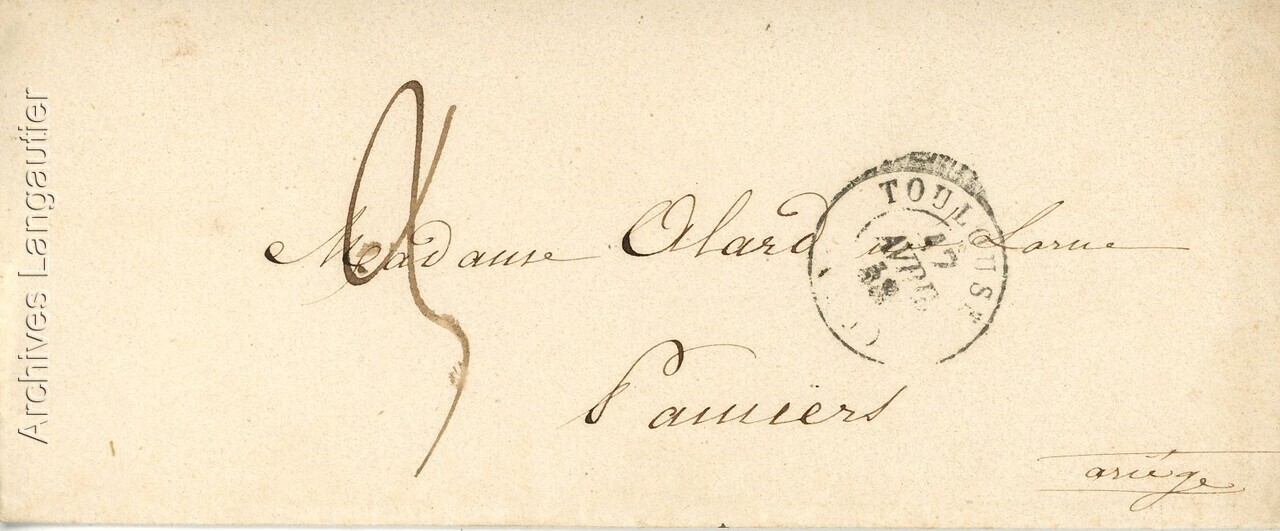 Archives Langautier
Madame Alard Lorme
TOULOUSE
17
AVRIL
Pamiers
ariège